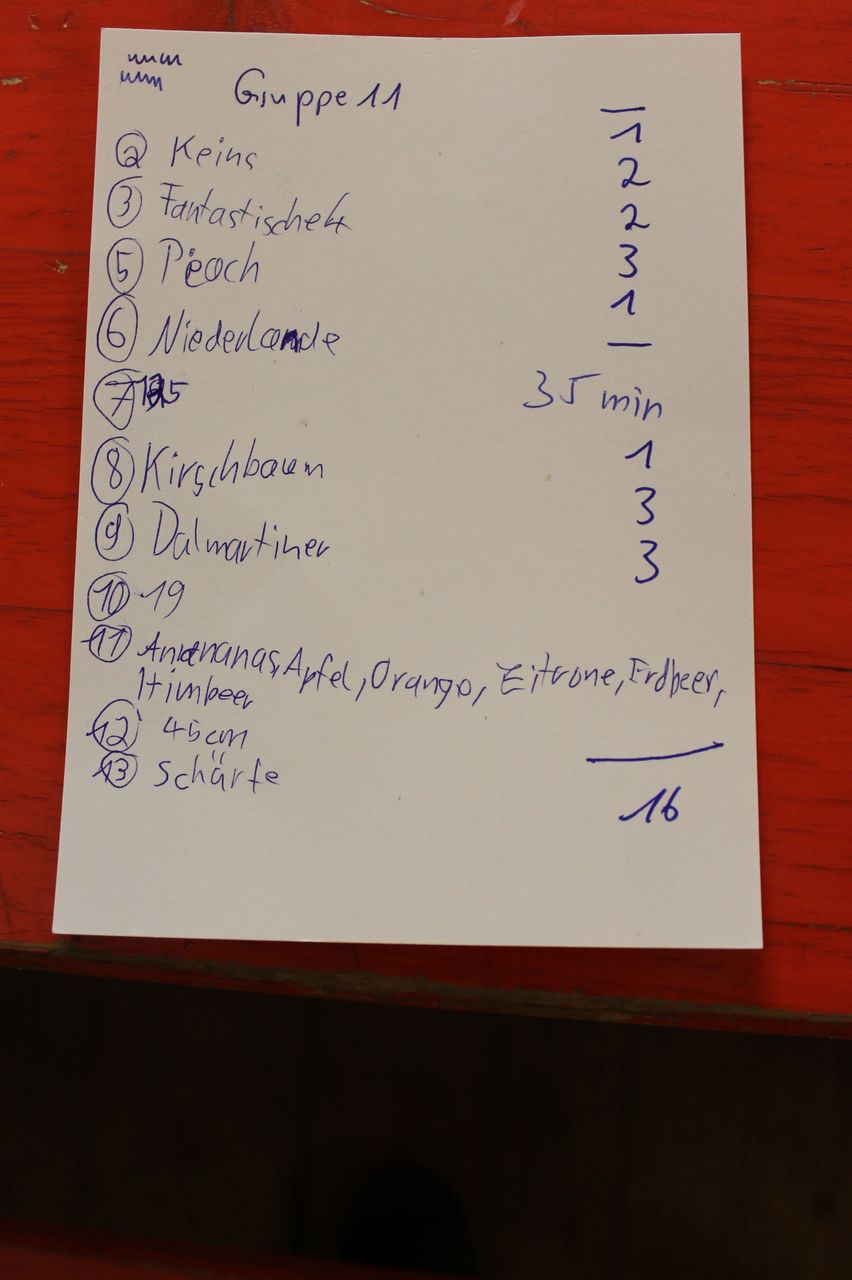 Gruppe 11
—
② Keins 1
2
③ Fantastische 4 2
⑤ Peach 3
1
⑥ Niederlande —
⑦ 35 min
⑧ Kirschbaum 1
3
⑨ Dalmartiner 3
⑩ 19
⑪ Ananas, Apfel, Orange, Zitrone, Erdbeer,
Himbeer
⑫ 45cm
⑬ Schärfe
16